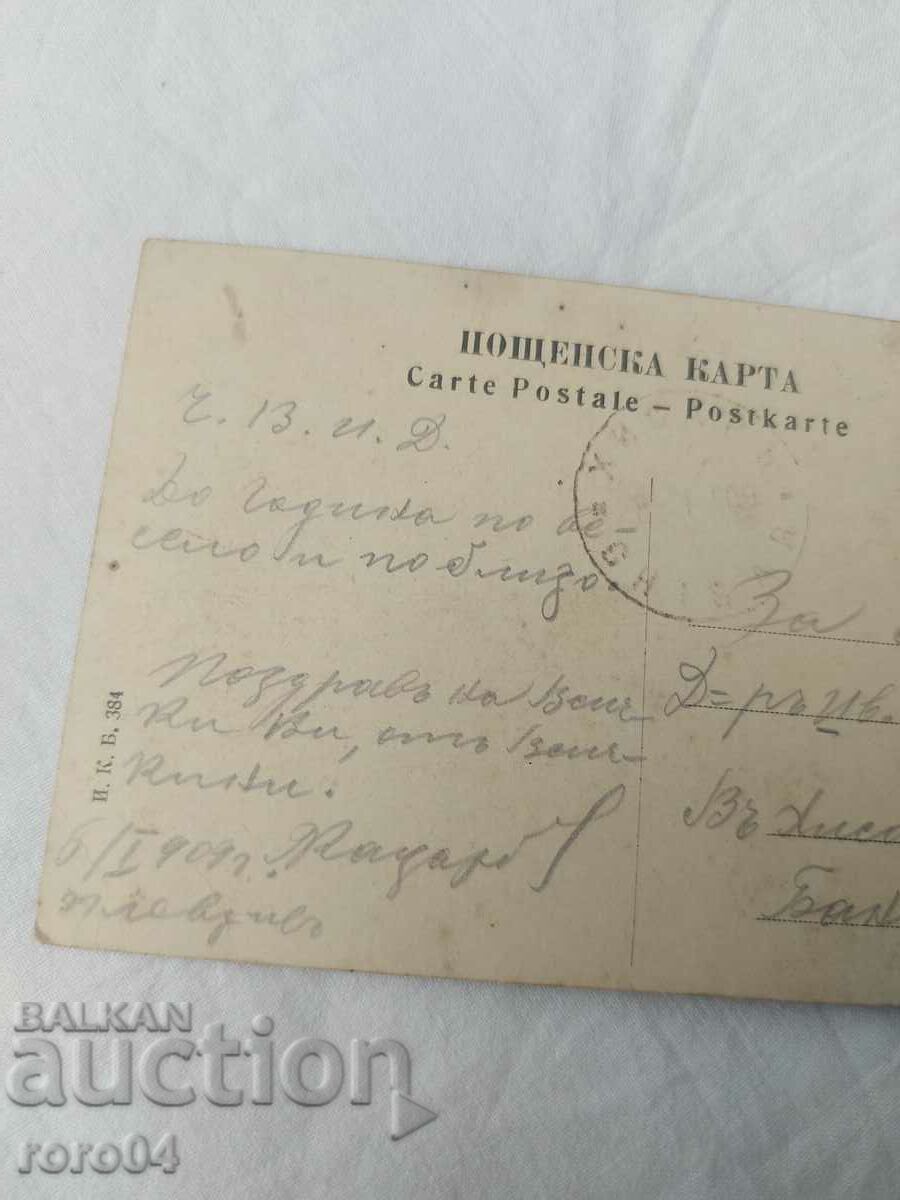 ПОЩЕНСКА КАРТА
Carte Postale – Postkarte
Ч. В. и. Д.
До година по ве-
село и по близо.
Поздравъ на Всич-
ки Ви, отъ Всич-
ки ни.
6/I
Пловдивъ
И. К. Б. 384
За
Д=ръ Цв.
Въ Хиса
Бан
BALKAN
auction
roro04